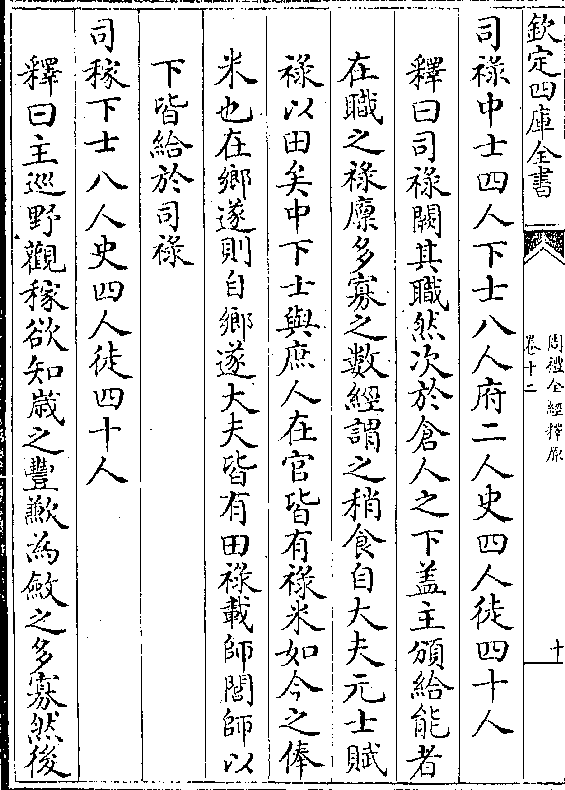 欽定四庫全書
周禮全經釋原
卷十二
十
司祿中士四人下士八人府二人史四人徒四十人
釋曰司祿闕其職然次於倉人之下蓋主頒給能者
在職之祿廩多寡之數經謂之稍食自大夫元士賦
祿以田矣中下士與庶人在官皆有祿米如今之俸
米也在鄉遂則自鄉遂大夫皆有田祿載師閭師以
下皆給於司祿
司稼下士八人史四人徒四十人
釋曰主巡野觀稼欲知歲之豐歉為斂之多寡然後